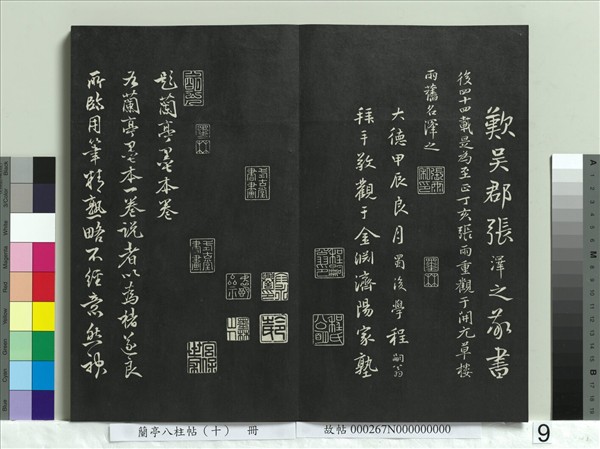 歎吳郡張澤之敬書
後四十四載是為至正丁亥張雨重觀于開元草樓
雨舊名澤之
大德甲辰良月蜀後學程嗣翁
拜手敬觀于金淵濟陽家塾
題蘭亭墨本卷
右蘭亭墨本一卷說者以為褚遂良
所臨用筆精熟略不經意然神
蘭亭八柱帖（十） 冊
故帖 000267N000000000
9